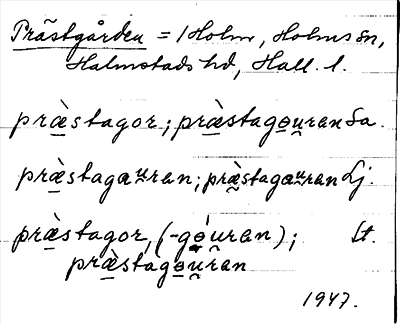 Prästgården = / Holm, Holms sn,
Halmstads hd, Hall. l.
præ̀stagor; præ̀stago̤u̯ran Sa.
præ̀stagaᵘ̯ran; præ̀stagaᵘ̯ran Lj.
præ̀stagor, (-gǿu̯ran); St.
præ̀stagɵu̯ran
1947.